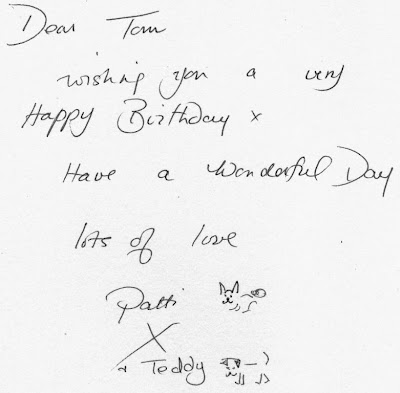 Dear Tom
wishing you a very
Happy Birthday x
Have a Wonderful Day
lots of love
Patti
X
+ Teddy